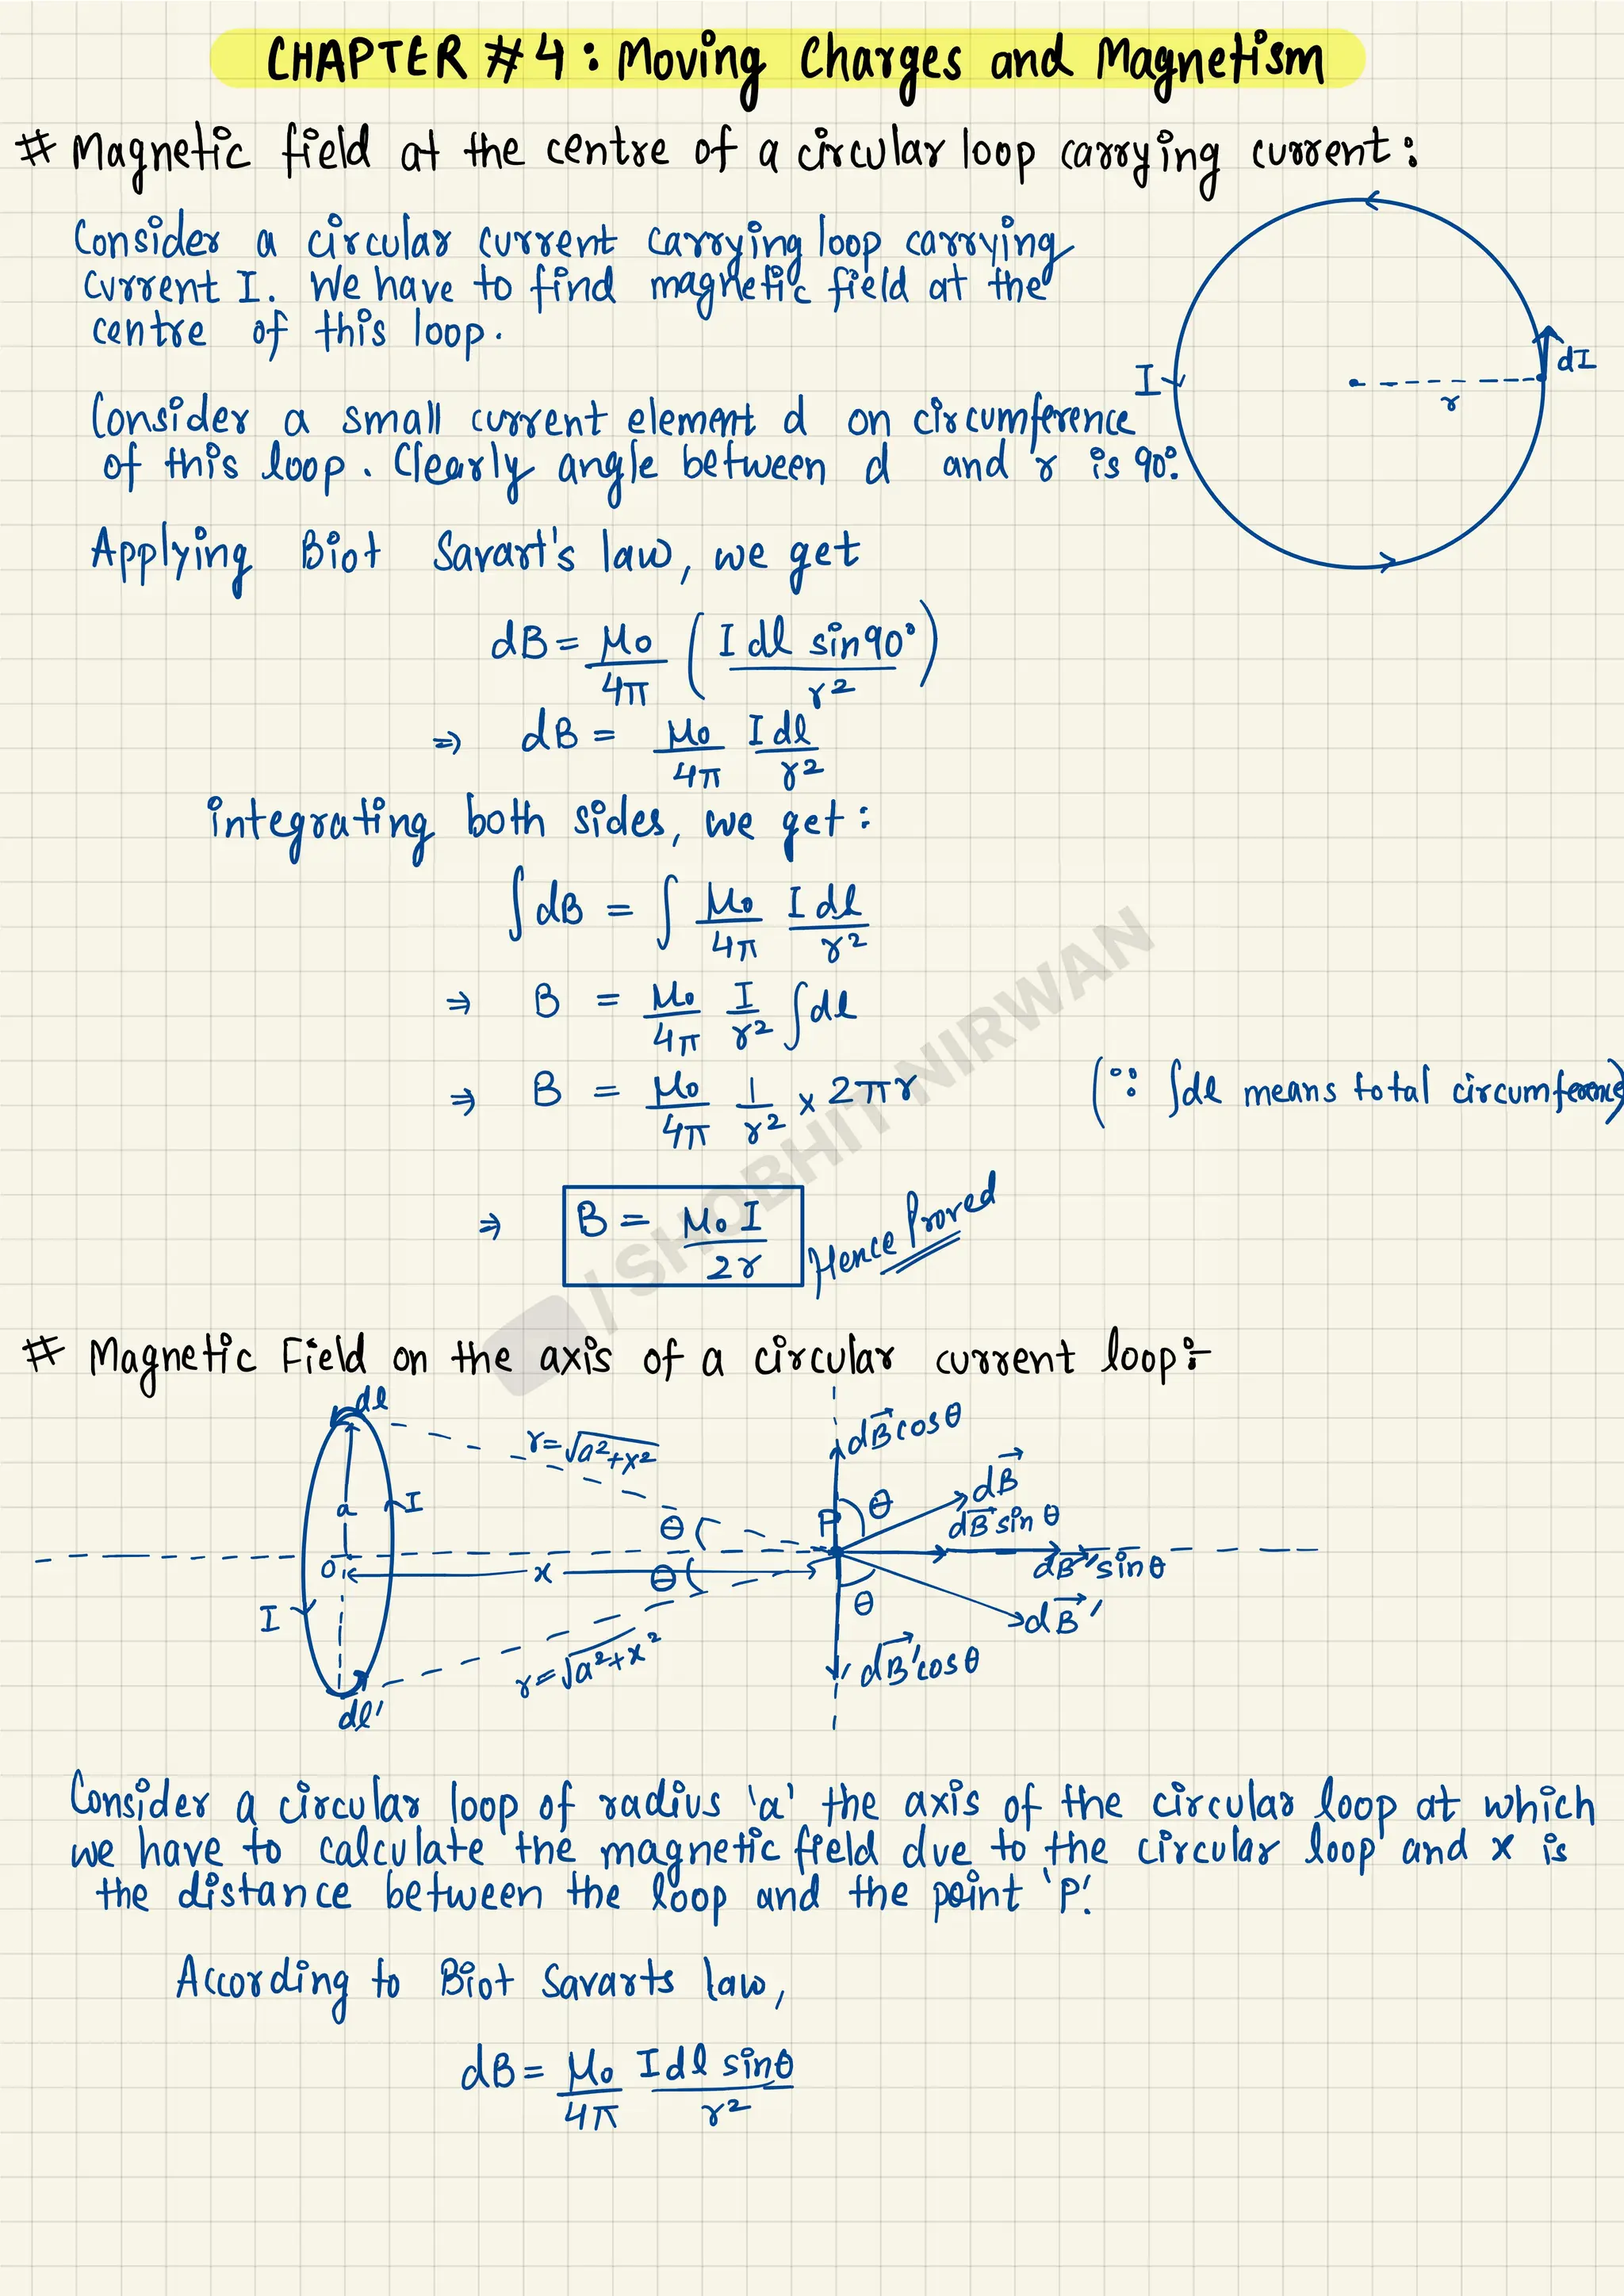 CHAPTER # 4 : Moving Charges and Magnetism
# Magnetic field at the centre of a circular loop carrying current :
Consider a circular current carrying loop carrying
current I. We have to find magnetic field at the
centre of this loop.
I
r
dI
Consider a small current element d on circumference
of this loop. Clearly angle between d and r is 90°.
Applying Biot Savart's law, we get
dB = μ₀/4π (I dl sin90°/r²)
⇒ dB = μ₀/4π I dl/r²
integrating both sides, we get :
∫dB = ∫ μ₀/4π I dl/r²
⇒ B = μ₀/4π I/r² ∫dl
⇒ B = μ₀/4π 1/r² × 2πr (∵ ∫dl means total circumference)
⇒ B = μ₀ I/2r Hence Proved
/ SHOBHIT NIRWAN
# Magnetic Field on the axis of a circular current loop:-
dl
r=√a²+x²
dB⃗ cosθ
a
I
θ
P
θ
dB⃗
dB⃗ sin θ
O
x
θ
dB⃗' sinθ
I
θ
dB⃗'
r=√a²+x²
dB⃗' cosθ
dl'
Consider a circular loop of radius 'a' the axis of the circular loop at which
we have to calculate the magnetic field due to the circular loop and x is
the distance between the loop and the point 'P'.
According to Biot Savarts law,
dB = μ₀/4π I dl sinθ/r²